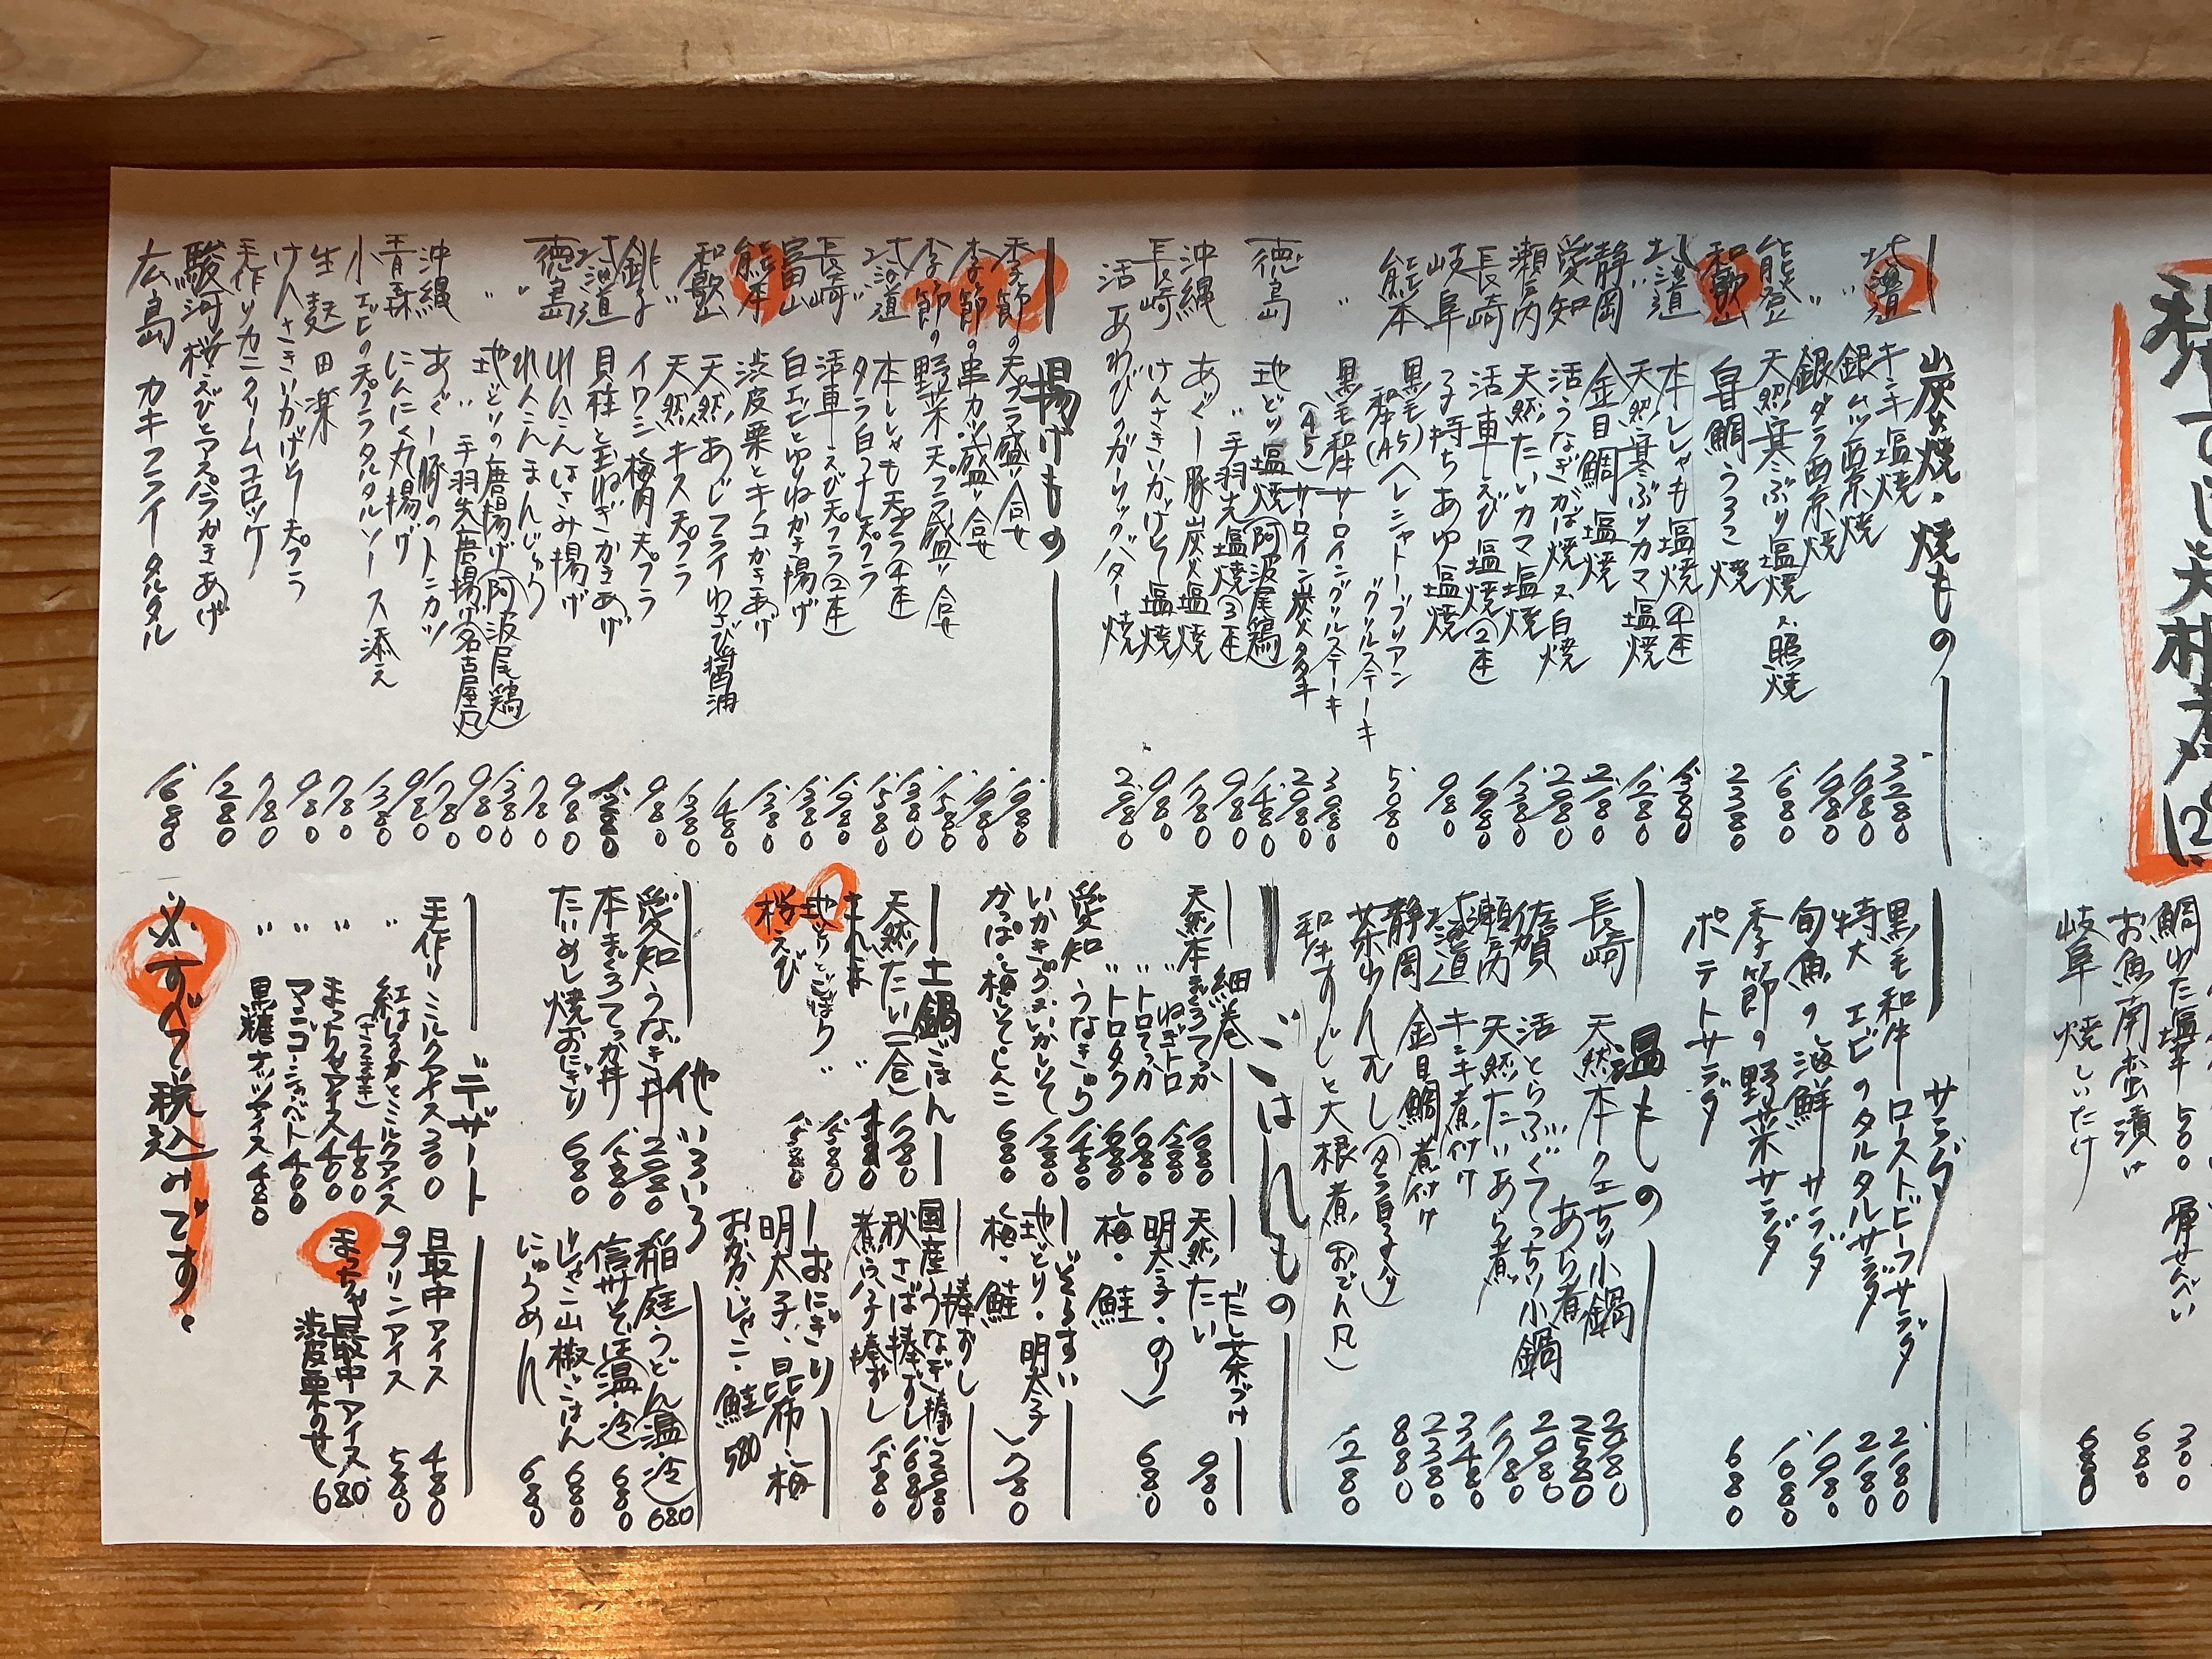 鯛わた塩辛 500
お魚南蛮漬け 680
岐阜 焼しいたけ 680
炭火焼・焼もの
北海道 キンキ塩焼 3280
〃 銀ムツ西京焼 1980
〃 銀ダラ西京焼 1980
能登 天然寒ぶり塩焼 又 照焼 1680
和歌山 甘鯛うろこ焼 2380
北海道 本ししゃも塩焼(4本) 1380
〃 天然寒ぶりカマ塩焼 1280
静岡 金目鯛塩焼 2180
愛知 活うなぎかば焼 又 白焼 2980
瀬戸内 天然たいカマ塩焼 1380
長崎 活車えび塩焼(2本) 1980
岐阜 子持ちあゆ塩焼 980
熊本 黒毛和牛(A5)ヘレシャトーブリアン
〃グリルステーキ 5080
〃 黒毛和牛サーロイングリルステーキ 3080
(A5)サーロイン炭火タタキ 2980
徳島 地どり塩焼(阿波尾鶏) 1480
〃 手羽先塩焼(3本) 980
沖縄 あぐー豚炭火塩焼 1780
長崎 けんさきいかげそ塩焼 980
活あわびのガーリックバター焼 2980
揚げもの
季節の天プラ盛り合せ 1980
季節の串カツ盛り合せ 1980
季節の野菜天プラ盛り合せ 1580
北海道 本ししゃも天プラ(4本) 1380
〃 タラ白子天プラ 1580
長崎 活車えび天プラ(2本) 1980
富山 白エビとゆりねかき揚げ 1380
熊本 渋皮栗とキノコかきあげ 1380
和歌山 天然あじフライわさび醤油 1480
〃 天然キス天プラ 1380
銚子 イワシ梅肉天プラ 980
北海道 貝柱と玉ねぎかきあげ 1280
徳島 れんこんはさみ揚げ 980
〃 れんこんまんじゅう 780
〃 地どりの唐揚げ(阿波尾鶏) 1380
〃 手羽先唐揚げ(名古屋風) 980
沖縄 あぐー豚のトンカツ 1780
青森 にんにく丸揚げ 980
小エビの天プラタルタルソース添え 1380
生麩田楽 780
けんさきいかげそ天プラ 980
手作りカニクリームコロッケ 780
駿河桜えびとアスパラかきあげ 1280
広島 カキフライタルタル 1680
サラダ
黒毛和牛ローストビーフサラダ 2180
特大エビのタルタルサラダ 2180
旬魚の海鮮サラダ 1980
季節の野菜サラダ 1680
ポテトサラダ 680
温もの
長崎 天然本クエちり小鍋 2980
あら煮 2580
佐賀 活とらふぐてっちり小鍋 2980
瀬戸内 天然たいあら煮 1780
北海道 キンキ煮付け 3480
静岡 金目鯛煮付け 2380
茶わんむし(タラ白子入り) 880
和牛すじと大根煮(おでん風) 1280
ごはんもの
細巻
天然本まぐろてっか 1680
〃 ねぎトロ 1380
〃トロてっか 1980
〃トロタク 1980
愛知 うなきゅう 1480
いかきゅう・いかしそ 1280
かっぱ・梅しそ・しんこ 680
だし茶づけ
天然たい 980
明太子・のり
梅・鮭 680
ぞうすい
地どり・明太子
梅・鮭 780
土鍋ごはん
天然たい(一合) 1780
さんま 〃
地とりとごぼう 〃 1580
桜えび 1580
棒ずし
国産うなぎ棒ずし 2980
秋さば棒ずし 1680
煮穴子棒ずし 1580
おにぎり
明太子・昆布・梅
おかか・じゃこ・鮭 580
他いろいろ
愛知 うなぎ丼 2980
本まぐろてっか丼 1580
たいめし焼おにぎり 680
稲庭うどん(温・冷) 680
信州そば(温・冷) 680
じゃこ山椒ごはん 680
にゅうめん 680
デザート
手作りミルクアイス 300
〃 紅はるかとミルクアイス
(さつま芋) 480
〃 まっちゃアイス 400
〃 マンゴーシャーベット 400
〃 黒糖ナッツアイス 480
最中アイス 480
プリンアイス 580
まっちゃ最中アイス
渋皮栗のせ 680
※すべて税込みです。